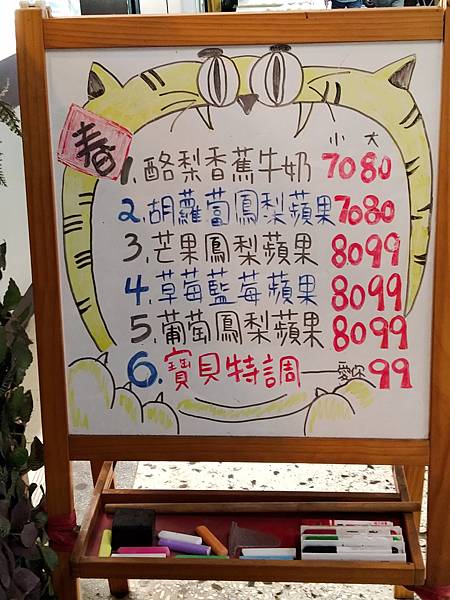 春
小 大
1.酪梨香蕉牛奶 70 80
2.胡蘿蔔鳳梨蘋果 70 80
3.芒果鳳梨蘋果 80 99
4.草莓藍莓蘋果 80 99
5.葡萄鳳梨蘋果 80 99
6.寶貝特調—愛你 99